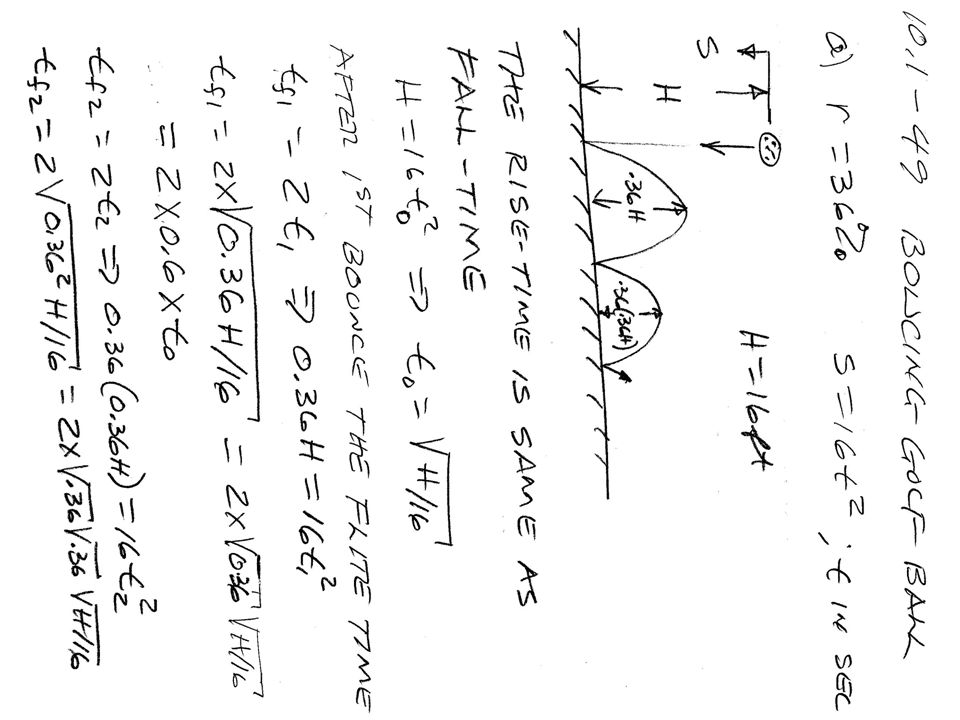 10.1-49 BOWCING GOLF BALL
a) r = 36% S = 16t² ; t IN SEC
H = 16 ft
S
H
.36H
.36(.36H)
THE RISE-TIME IS SAME AS
FALL-TIME
H = 16t₀² ⇒ t₀ = √H/16
AFTER 1ST BOUNCE THE FLITE TIME
tf₁ = 2t₁ ⇒ 0.36H = 16t₁²
tf₁ = 2×√0.36H/16 = 2×√0.36 √H/16
= 2×0.6×t₀
tf₂ = 2t₂ ⇒ 0.36(0.36H) = 16t₂²
tf₂ = 2√0.36²H/16 = 2×√.36 √.36 √H/16